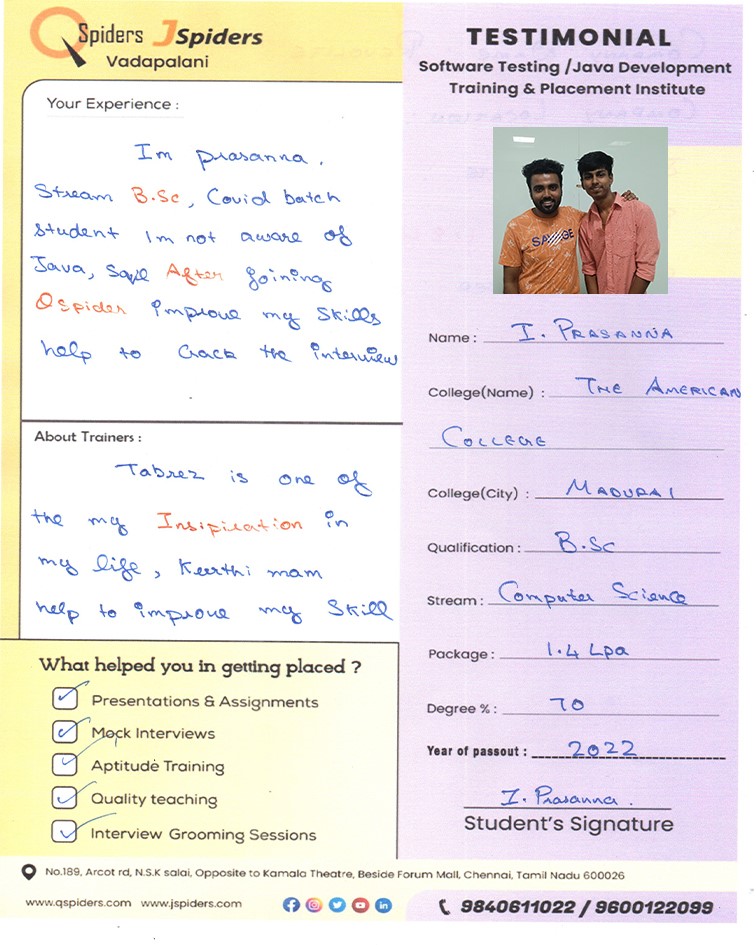 QSpiders JSpiders
Vadapalani
Your Experience :
Im prasanna.
Stream B.Sc, Covid batch
student Im not aware of
Java, Sql After joining
Qspider improve my Skills
help to Crack the interview
About Trainers :
Tabrez is one of
the my Insipiration in
my life, Keerthi mam
help to improve my Skill
What helped you in getting placed ?
Presentations & Assignments
Mock Interviews
Aptitude Training
Quality teaching
Interview Grooming Sessions
TESTIMONIAL
Software Testing /Java Development
Training & Placement Institute
SAVAGE
Name : I. PRASANNA
College(Name) : THE AMERICAN
COLLEGE
College(City) : MADURAI
Qualification : B.Sc
Stream : Computer Science
Package : 1.4 Lpa
Degree % : 70
Year of passout : 2022
I. Prasanna.
Student's Signature
No.189, Arcot rd, N.S.K salai, Opposite to Kamala Theatre, Beside Forum Mall, Chennai, Tamil Nadu 600026
www.qspiders.com www.jspiders.com
9840611022 / 9600122099